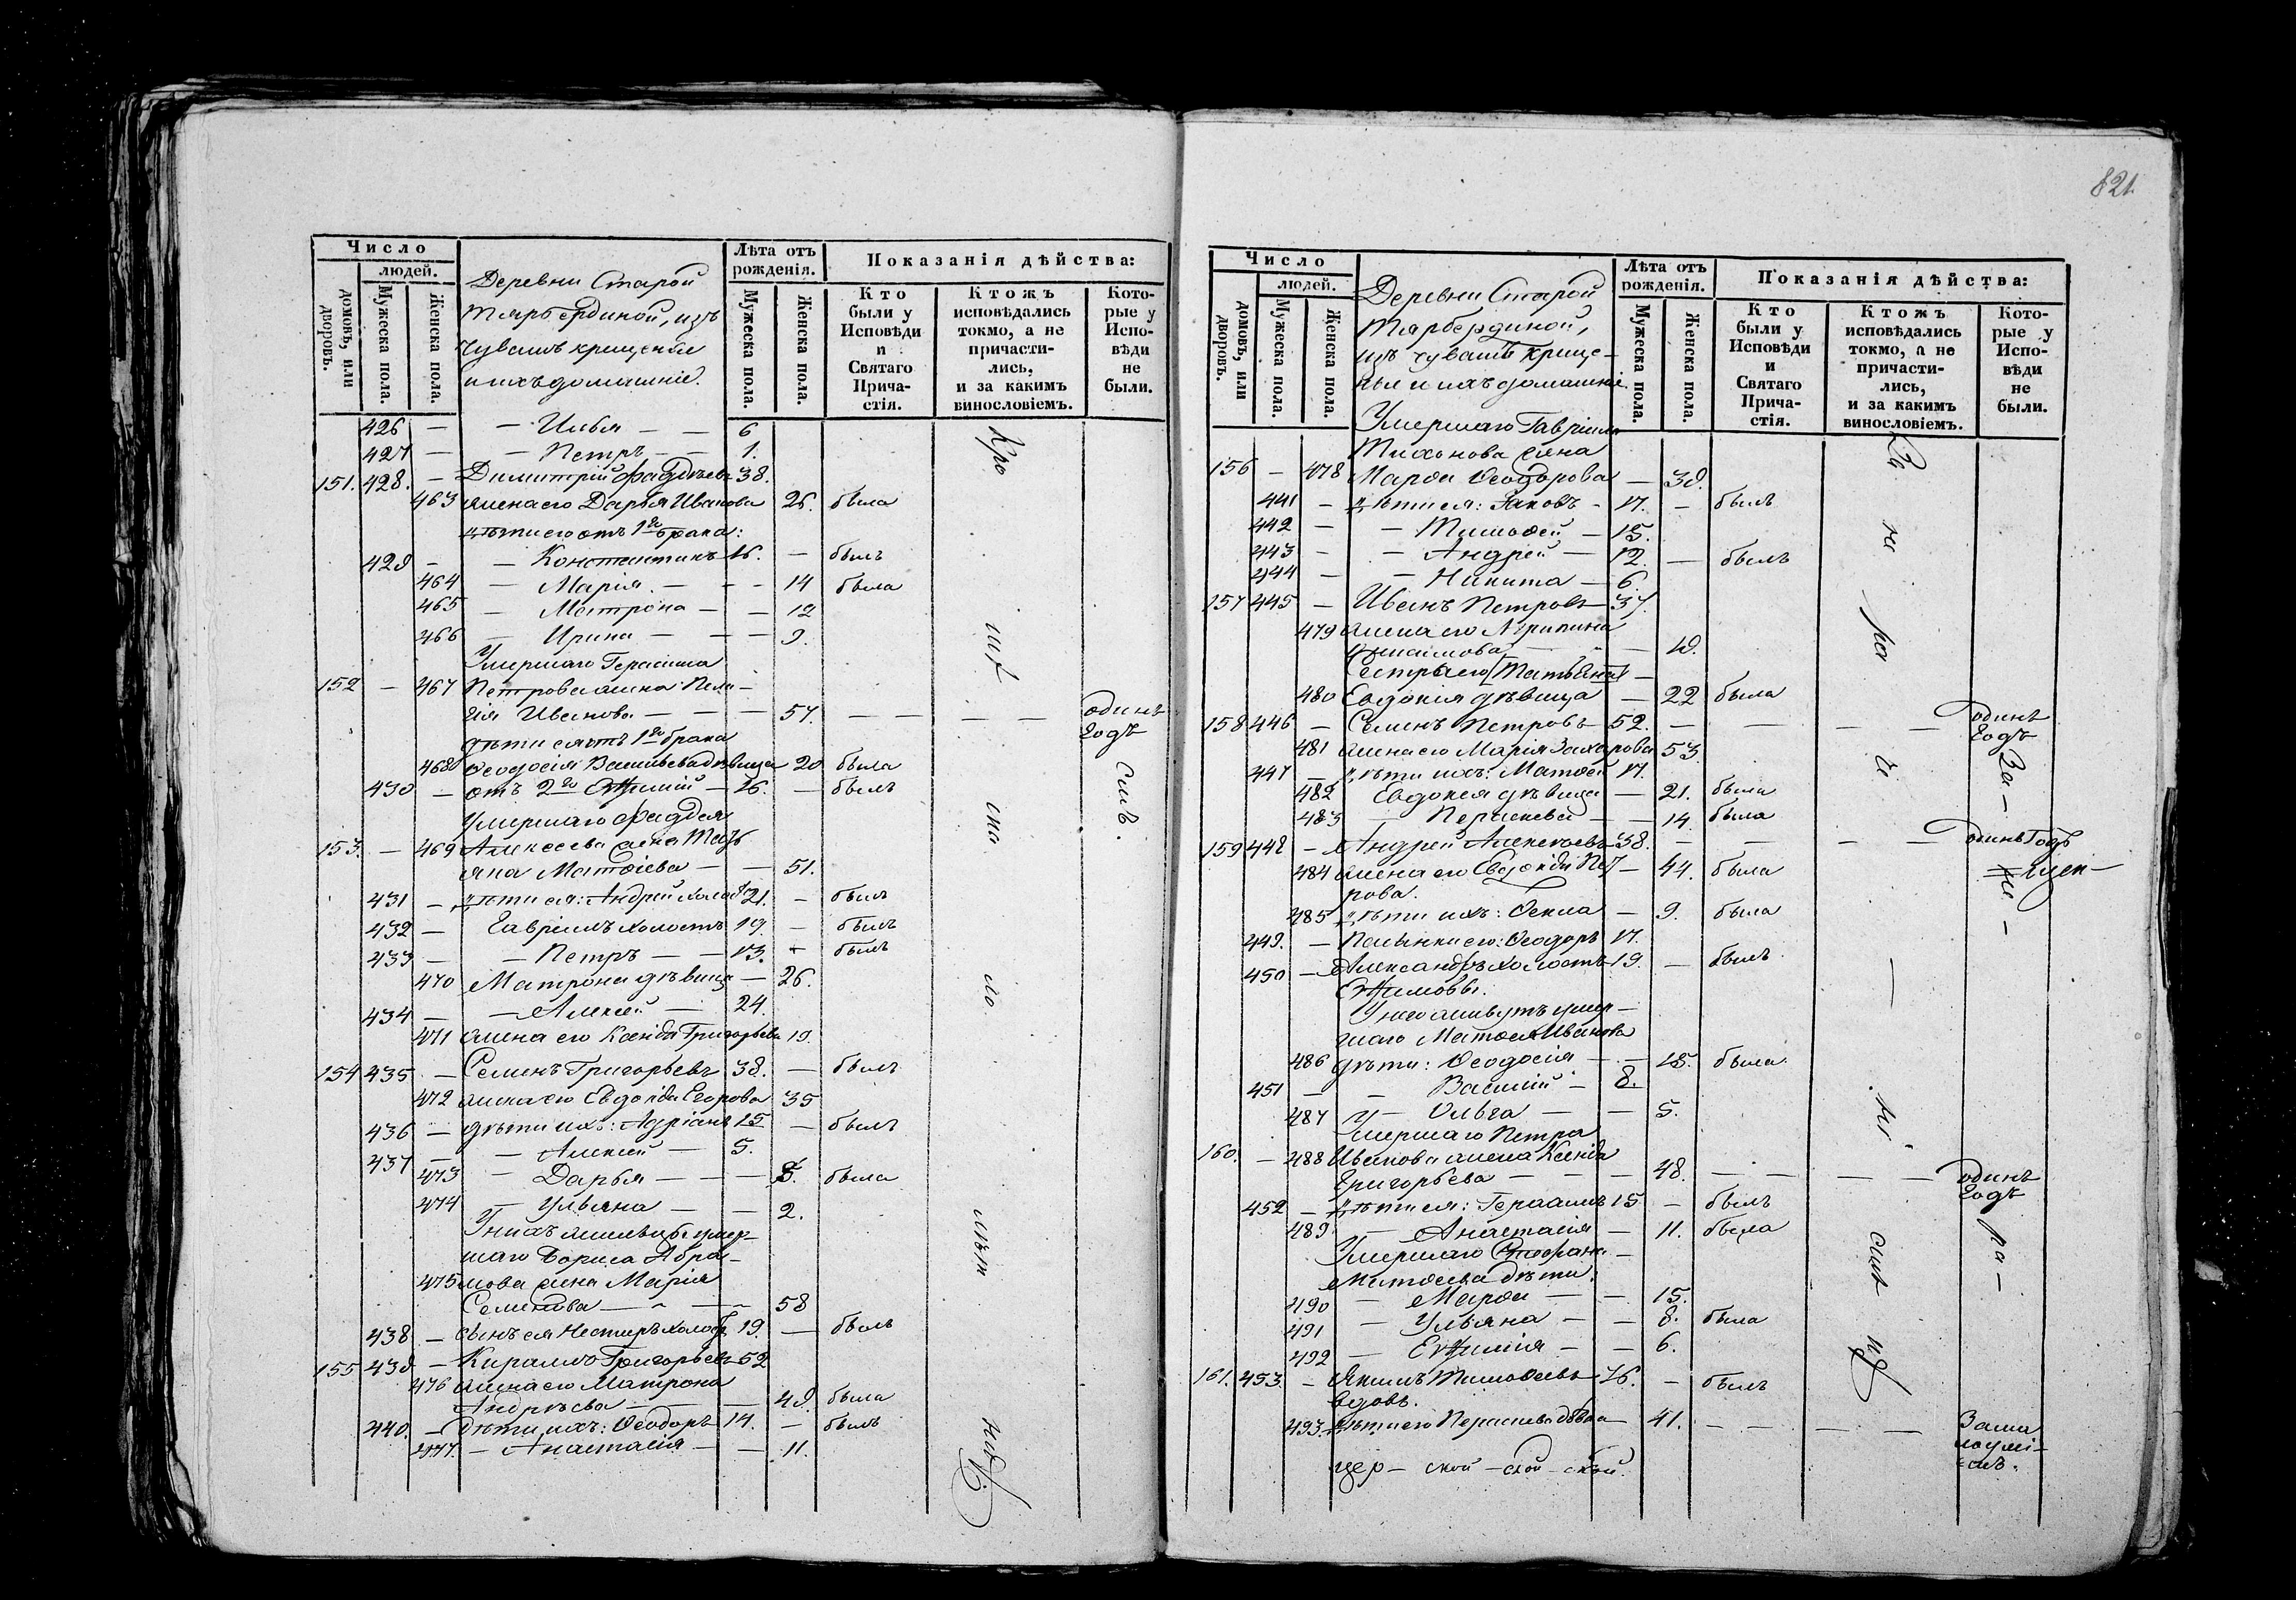 821.
Число
людей.
домовъ, или дворовъ.
Мужеска пола.
Женска пола.
Деревни Старой
Тярбердиной, изъ
чувашъ крещеные
и ихъ домашніе.
Лѣта отъ рожденія.
Мужеска пола.
Женска пола.
Показанія дѣйства:
Кто были у Исповѣди и Святаго Прича-стія.
Ктожъ исповѣдались токмо, а не причасти-лись, и за какимъ винословіемъ.
Кото-рые у Испо-вѣди не были.
426 — — Илья — — 6
427 — — Петръ — — 1.
151. 428. — Димитрій Фаддѣевъ 38.
463 жена его Дарья Иванова 26. была
дѣти его отъ 1го брака:
429 — — Константинъ 16. — былъ
464 — Марія. — — — 14 была
465 — Матрона — — 12
466 — Ирина — — — 9.
Умершаго Герасима
152 — 467 Петрова жена Пела-
гія Иванова — — — 57. — — — — одинъ годъ
дѣти ея отъ 1го брака
468 Ѳеодосія Васильева дѣвица 20 была
430 — отъ 2го Евѳимій — 16. — былъ
умершаго Фаддея
153. — 469 Алексеева жена Тать
яна Матѳіева — — 51.
431 — дѣти ея: Андрей холостъ 21. — былъ
432 — Гавріилъ холостъ 19. — былъ
433 — — Петръ — — 13. — былъ
470 Матрона дѣвица — 26.
434 — — Алексей — 24.
471 жена его Ксенія Григорьева 19.
154 435 — Семенъ Григорьевъ 38. — былъ
472 жена его Евдокія Егорова 35
436 — дѣти ихъ: Адріанъ 15 — былъ
437 — — Алексей — 5.
473 — Дарья — — — 8. была
474 — Ульяна — — 2.
У нихъ жительствомъ умер-
шаго Бориса Абра-
475 мова жена Марія
Семенова — — — 58
438 — сынъ ея Несторъ холостъ 19. — былъ
155 439. — Кириллъ Григорьевъ 52
476 жена его Матрона
Андреева — — — 49. была
440. — дѣти ихъ: Ѳеодоръ 14. — былъ
477. — Анастасія — — 11.
Число
людей.
домовъ, или дворовъ.
Мужеска пола.
Женска пола.
Деревни Старой
Тярбердиной,
изъ чувашъ креще-
ные и ихъ домашніе.
Лѣта отъ рожденія.
Мужеска пола.
Женска пола.
Показанія дѣйства:
Кто были у Исповѣди и Святаго Прича-стія.
Ктожъ исповѣдались токмо, а не причасти-лись, и за какимъ винословіемъ.
Кото-рые у Испо-вѣди не были.
Умершаго Гавріила
Тихонова жена
156 — 478 Марѳа Ѳеодорова — 39.
441 — дѣти ея: Іаковъ — 17. — былъ
442 — — Тимоѳей — 15.
443 — — Андрей — 12. — былъ
444 — — Никита — 6.
157 445 — Иванъ Петровъ — 37.
479 жена его Агрипина
— — 40.
Сестры его [Татьяна] —
480 Евдокія дѣвица — 22 была
158 446 — Семенъ Петровъ 52. — — — — одинъ годъ
481 жена его Марія Захарова 53
447 — дѣти ихъ: Матѳей 17.
482 Евдокея дѣвица — 21. была
483 — Пераскева — — 14 была
159 448 — Андрей Алексеевъ 38. — — — — одинъ годъ
484 жена его Евдокія Пет — 44. была
рова.
485 дѣти ихъ: Ѳекла — 9. была
449. — Пасынки его: Ѳеодоръ 17.
450 — Александръ холостъ 19. — былъ
Евѳимовы.
У него живутъ умер-
шаго Матѳея Иванова
486 дѣти: Ѳеодосія — — 18. была
451 — — Василій — 8.
487 — Ольга — — 5.
Умершаго Петра
160. — 488 Иванова жена Ксенія
Григорьева — — — 48. — — — — одинъ годъ
452 — дѣти ея: Герасимъ 15 — былъ
489 — Анастасія — 11. была
Умершаго Стефана —
Матѳеева дѣти:
490 — Марѳа — — 15.
491 — Ульяна — — 8. была
492 — Евѳимія — — 6.
161. 453. — Якимъ Тимоѳеевъ 76. — былъ
вдовъ.
493. дѣти его Пераскева дѣвица — 41. — — — — За ма
лоумі-
емъ.
цер— ской —ской —ской.